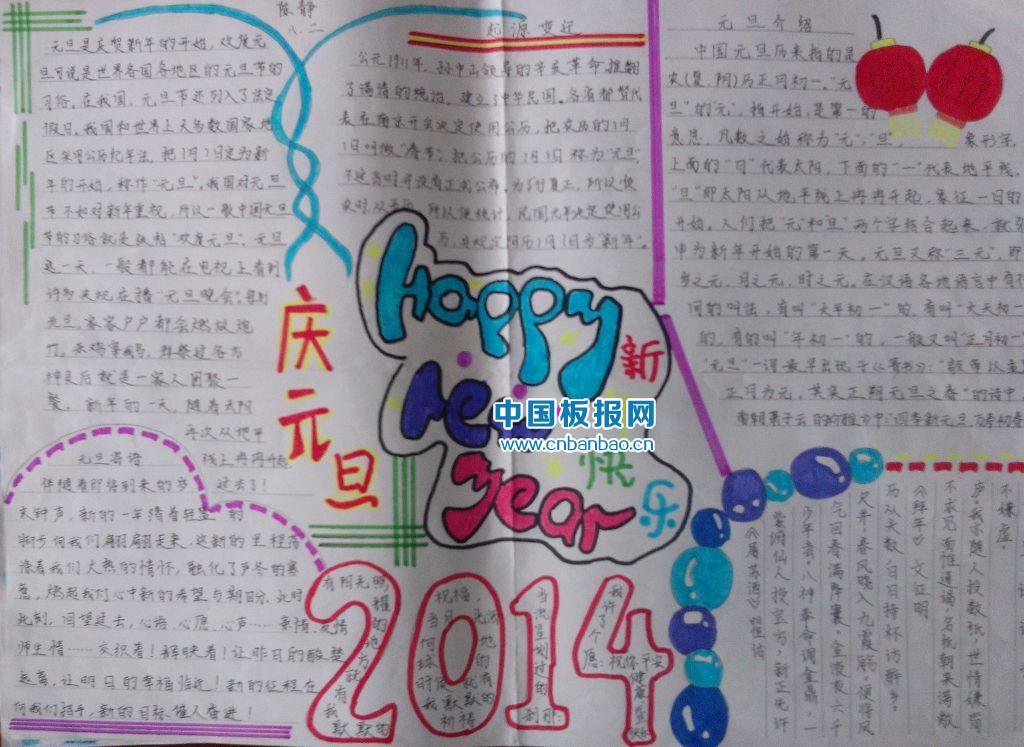 陈静
八.二
元旦是庆贺新年的开始，欢度元
旦可说是世界各国各地区的元旦节的
习俗。在我国，元旦节还列入了法定
假日。我国和世界上大多数国家地
区采用公历纪年法，把1月1日定为新
年的开始，称作"元旦"。我国对元旦
节不如对新年重视，所以一般中国元旦
节的习俗就是张贴"欢度元旦"。元旦
这一天，一般都能在电视上看到
元旦，家家户户都会燃放炮
竹，杀鸡宰鹅，
神灵后就是一家人团聚一
餐。新年的一天，随着太阳
再次从地平
线上冉冉升起
过去了！
起源变迁
公元1911年，孙中山领导的辛亥革命推翻
了满清的统治，建立了中华民国。各省都督代
表在南京开会决定使用公历，把农历的1月
1日叫做"春节"，把公历的1月1日称为"元旦"
不过当时并没有正式公布。为了
所以便统计，民国元年决定使用公
历，并规定阳历1月1日为"新年"。
元旦介绍
中国元旦历来指的是
农(夏、阴)历正月初一。"元
旦"的元"，指开始，是第一的
意思，凡数之始称为"元"；旦，象形字，
上面的"日"代表太阳，下面的"一"代表地平线，
"旦"即太阳从地平线上冉冉升起，象征一日的
开始。人们把"元"和旦"两个字结合起来，就
申为新年开始的第一天。元旦又称"三元"，即
岁之元、月之元、时之元。在汉语各地语言中有不
同的叫法，有叫"大年初一"的，有叫"大天初一
的，有的叫"年初一"的，一般又叫"正月初一
"元旦"一词最早出现于《晋书》：
正月为元，其实正朔元旦之春"的诗中
庆元旦
Happy
new
year
新
年
快
乐
中国板报网
www.cnbanbao.cn
元旦寄语
伴随着即将到来的岁
末钟声，新的一年踏着轻盈的
脚步向我们翩翩走来，这新的里程
我们火热的情怀，融化了严冬的寒
意，燃起我们心中新的希望与期盼。此时
此刻，回望过去，心语、心愿、心声……亲情、友情
师生情……交织着！辉映着！让昨日的酸楚
远离，让明日的幸福临近！新的征程在
向我们招手，新的目标催人奋进！
2014
有阳光照耀的地方就有我默默的
祝福，当月光洒向地球的时候就有我默默的祈祷
当流星划过的刹那，
我许了个愿：祝你平安健康
不嫌虚。
我亦随人投数纸，世情嫌简
不求见面惟通谒，名纸朝来满敝庐
《拜年》 文征明
历从天数，白日持杯访新乡。
尺井，春风晚入九霞觞。便将
气回春满绛囊。金液夜
少年长。八神奉命调金鼎，一
紫府仙人授宝方，新正先许
《屠苏酒》 明瞿祐